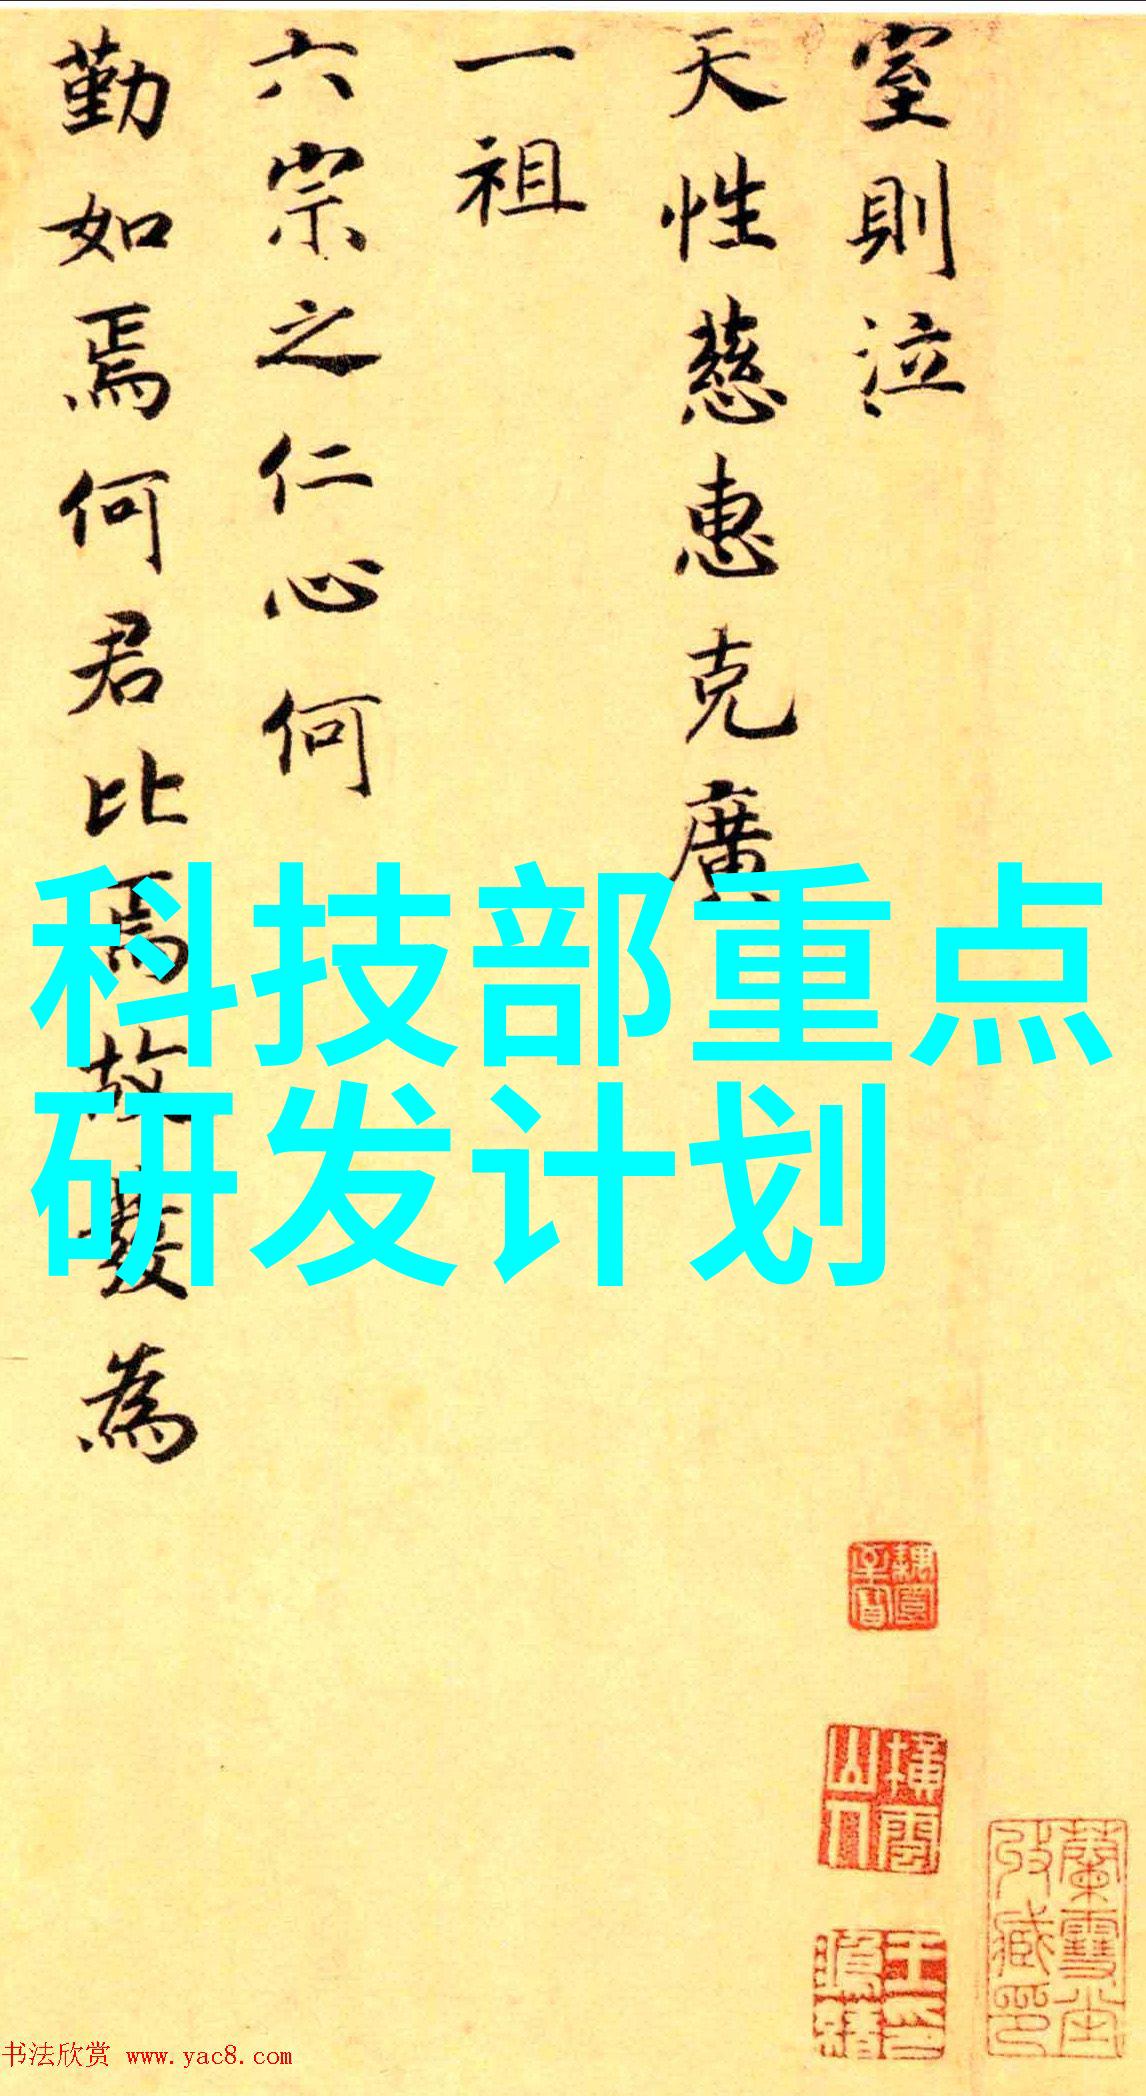 室則泣
天性慈惠克廣
一祖
六宗之仁心何
勤如焉何君比焉故發為
科技部重点
研发计划
蘭雪堂
收藏印
书法欣赏 www.yac8.com